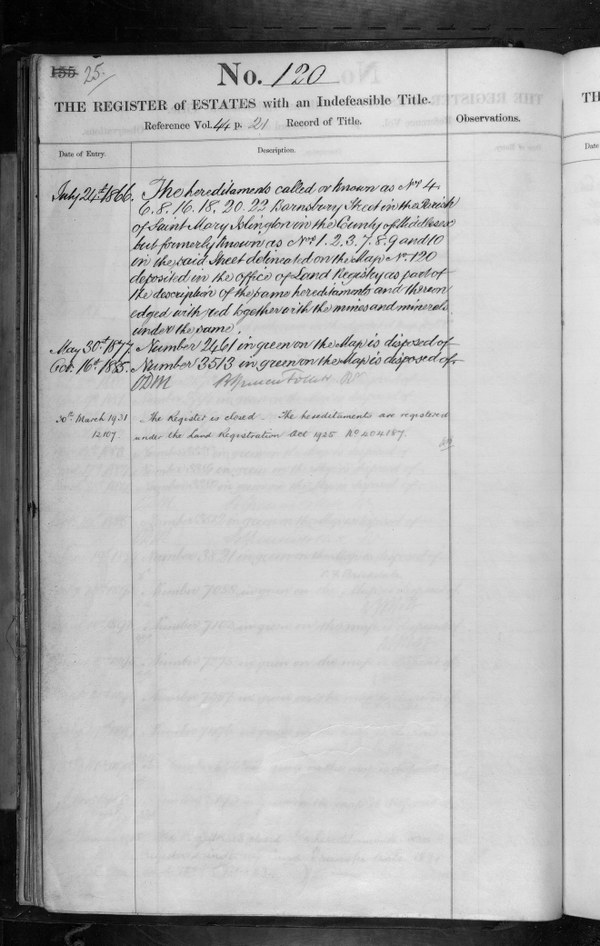 155 25.
No. 120
THE REGISTER of ESTATES with an Indefeasible Title.
Reference Vol. 44 p. 21 Record of Title.
Observations.
Date of Entry.
Description.
July 24th 1866. The hereditaments called or known as Nos 4.
6. 8. 16. 18. 20. 22 Barnsbury Street in the Parish
of Saint Mary Islington in the County of Middlesex
but formerly known as Nos 1. 2. 3. 7. 8. 9 and 10
in the said Street delineated on the Map No. 120
deposited in the Office of Land Registry as part of
the description of the same hereditaments and thereon
edged with red together with the mines and minerals
under the same.
May 30th 1877. Number 2461 in green on the Map is disposed of
Oct. 16th 1885. Number 3513 in green on the Map is disposed of
30th March 1931 The Register is closed. The hereditaments are registered
12107. under the Land Registration Act 1925 No 404187.